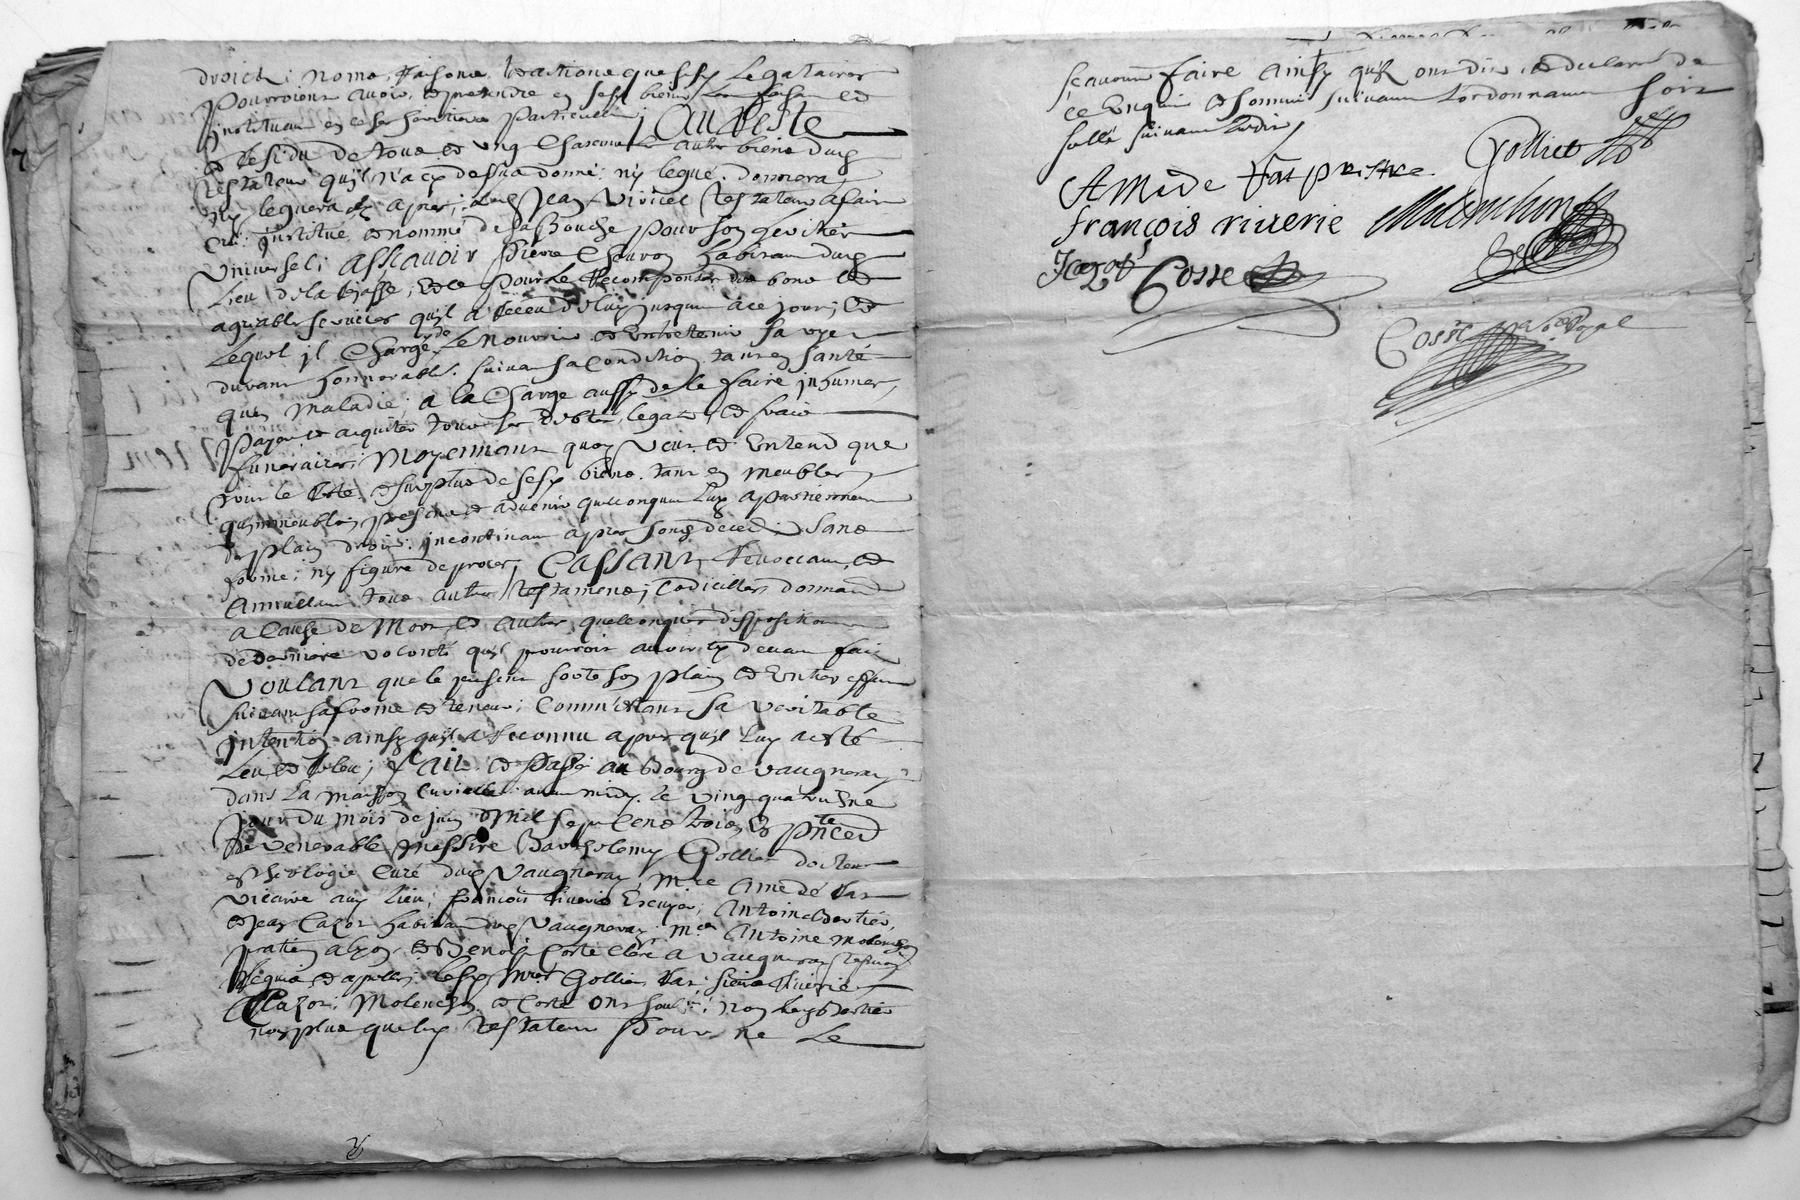 droicts noms raisons et actions que sesd legataires
pourroient avoir et pretendre en sesd biens les faisant et
instituant en ce ses heritiers particuliers, Au Reste
et residu de tous et ung chascuns les autres biens dud
testateur qu'il n'a cy dessus donné ny legué, donnera
ny leguera cy apres; led Jean Viricel testateur a fait
créé institué et nommé de sa bouche pour son heritier
universel; assavoir Pierre habitant dud
lieu de la et ce pour le recompenser des bons et
agreables services qu'il a receu de luy jusques à ce jour; et
lequel il charge de le nourrir et entretenir sa vye
durant honnorablt suivant sa condition tant en santé
qu'en maladie; a la charge aussy de le faire inhumer,
payer et acquiter tous ses debtes, legats et frais
funeraires; Moyennant quoy veut et entend que
tout le reste et surplus de sesd biens tant en meubles
qu'immeubles presens et advenir quelconques luy apartiennent
de plain droit incontinant apres son deced sans
forme; ny figure de proces; Cassant, revocant et
annullant tous autres testaments, codicilles, donnaons
a cause de mort, et autres quelconques dispositions
de derniere volonté qu'il pourroit avoir cy devant fait
Voulant que le present sorte son plain et entier effect
suivant sa forme et teneur; comm'estant sa veritable
intention ainsy qu'il a reconnu apres qu'il luy a esté
leu et releu; Fait et Passé au bourg de vaugneray
dans la maison curialle avant midy le vingt quatriesme
jour du mois de juin mil sept cens trois, et pnce
de venerable messire Barthelemy Golliet docteur
en theologie curé dud Vaugneray, Mre Amedé Fat
vicaire aud lieu; françois riverie Escuyer, Antoine Bertier,
et Jean Cazot habitants dud Vaugneray Mes Antoine Molenchon
praticien a et Benoist Coste clerc a vaugneray tesmoins
requis et apellés; lesd mres Golliet Fat; sieurs riverie
Cazot; Molenchon et Coste ont soubsé; non led Bertier
non plus que led testateur Pour ne Le
sçavoir faire ainsy qu'ils ont dit et declaré de
ce enquis et sommés suivant l'ordonnance soit
sellé suivant l'edit
Golliet
Amede Fat prestre
françois riverie Mulenchon
Jcazot Cosse
Coste Royal